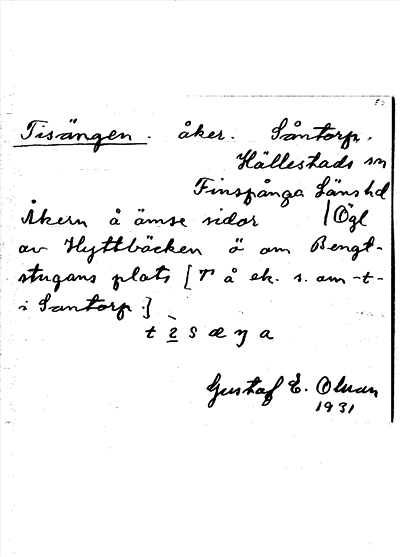 Tisängen. åker. Såntorp.
Hällestads sn
Finspånga Länshd
Åkern å ömse sidor /Ögl
av Hyttbäcken ö om Bengt-
stugans plats [r å ek. s. om -t-
i Santorp.]
Gustaf E. Olman
1931